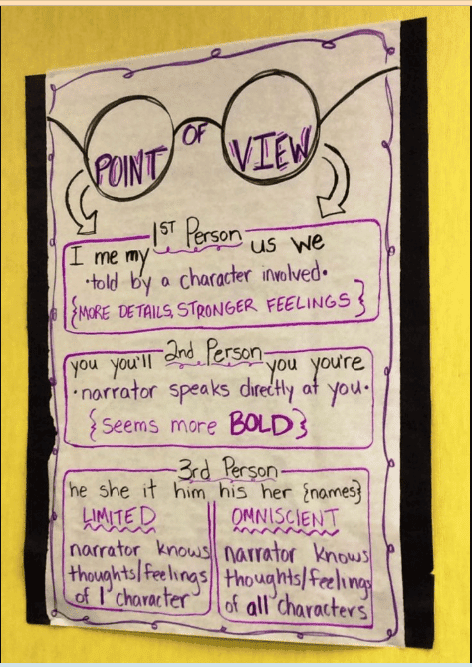 POINT OF VIEW
1ST Person
I me my us we
•told by a character involved•
{MORE DETAILS, STRONGER FEELINGS}
2nd Person
you you'll you you're
•narrator speaks directly at you•
{seems more BOLD}
3rd Person
he she it him his her {names}
LIMITED
narrator knows
thoughts/feelings
of 1 character
OMNISCIENT
narrator knows
thoughts/feelings
of all characters